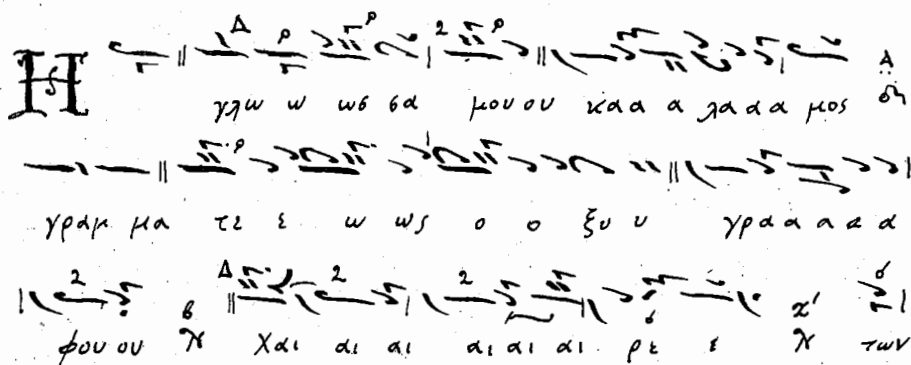 Η γλω ω ωσ σα μου ου κα α α λα α α μος
γραμ μα τε ε ω ως ο ο ξυ υ γρα α α α α
φου ου χαι αι αι αι αι αι ρε ε των